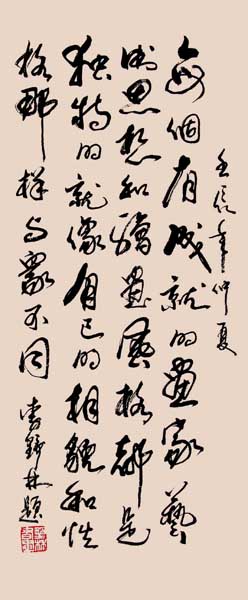 壬辰年仲夏
每個有成就的畫家藝
術思想和繪畫風格都是
独特的就像自己的相貌和性
格那樣与眾不同
林題